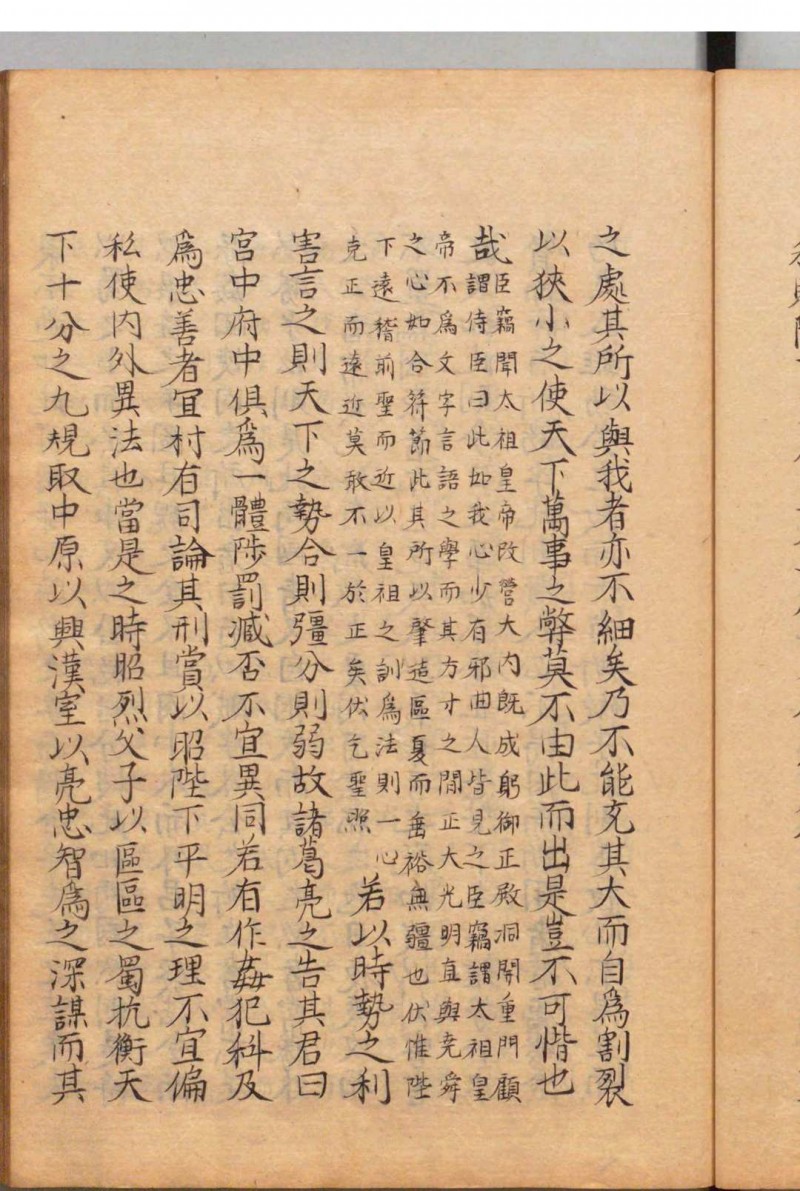 之處其所以與我者亦不細矣乃不能充其大而自爲割裂
以狹小之使天下萬事之弊莫不由此而出是豈不可惜也
哉
臣竊聞太祖皇帝改營大内既成躬御正殿洞開重門顧
謂侍臣曰此如我心少有邪曲人皆見之臣竊謂太祖皇
帝不爲文字言語之學而其方寸之間正大光明直與堯舜
之心如合符節此其所以肇造區夏而垂裕無疆也伏惟陛
下遠稽前聖而近以皇祖之訓爲法則一心
克正而遠近莫敢不一於正矣伏乞聖照
若以時勢之利
害言之則天下之勢合則彊分則弱故諸葛亮之告其君曰
宮中府中俱爲一體陟罰臧否不宜異同若有作姦犯科及
爲忠善者宜村有司論其刑賞以昭陛下平明之理不宜偏
私使内外異法也當是之時昭烈父子以區區之蜀抗衡天
下十分之九規取中原以興漢室以亮忠智爲之深謀而其